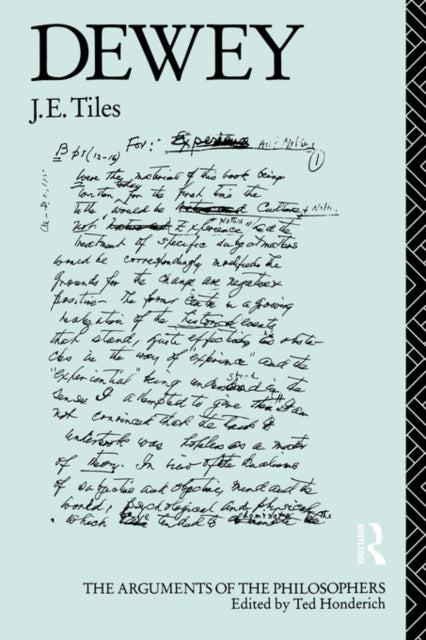 DEWEY
J.E. Tiles
B pt (12-16) For: Experience And Nature
1
Were the material of this book being
written today for the first time the
title would be Culture & Nature
not Experience
treatment of specific subject matters
would be correspondingly modified. The
grounds for the change are negative &
positive- The former in a growing
realization of the historical
that stand, quite effectively obsta-
cles in the way of "experience" and the
"experiential" being understood in the
sense I attempted to give them. I am
not convinced that the task I
undertook was hopeless as a matter
of theory. In view of the dualisms
of subjective and objective, mind and the
world, psychological and physical
which tended to dominate the
ROUTLEDGE
THE ARGUMENTS OF THE PHILOSOPHERS
Edited by Ted Honderich